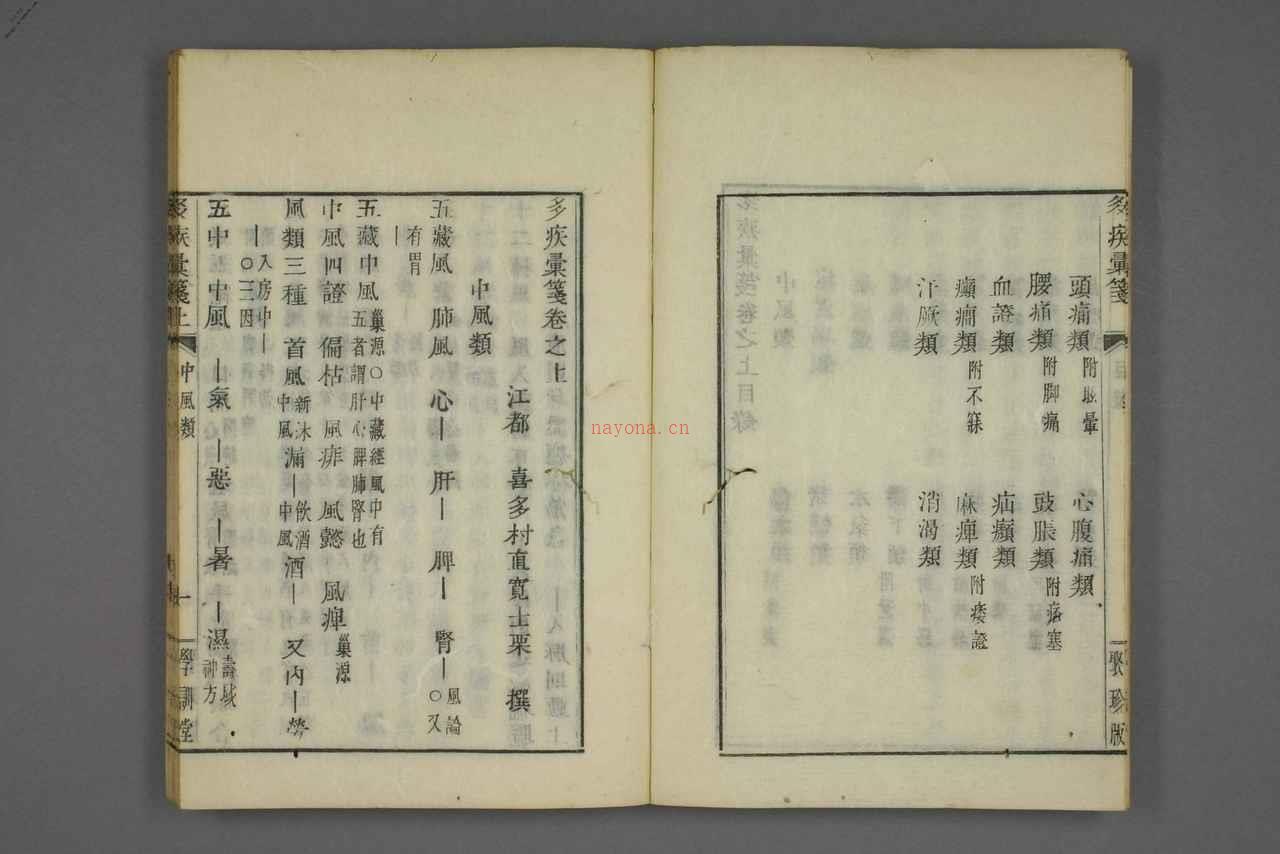 多疾彙箋
頭痛類 附眩暈 心腹痛類
腰痛類 附脚痛 鼓脹類 附痞塞
血證類 疝㿗類
癲癇類 附不寐 麻痺類 附痿證
汗厥類 消渴類
聚珍版
多疾彙箋卷之上
江都 喜多村直寬士栗 撰
中風類
五藏風 肺風 心｜ 肝｜ 脾｜ 腎｜ 風論○又
有胃｜
五藏中風 巢源○中藏經風中有五者謂肝心脾肺腎也
中風四證 偏枯 風痱 風懿 風痺 巢源
風類三種 首風 新沐中風 漏｜ 飲酒中風 酒｜ 又內｜ 勞
｜入房中｜○三因
五中 中風 ｜氣 ｜惡 ｜暑 ｜濕 壽域神方
多疾彙箋上 中風類 一 學訓堂
nayona.cn